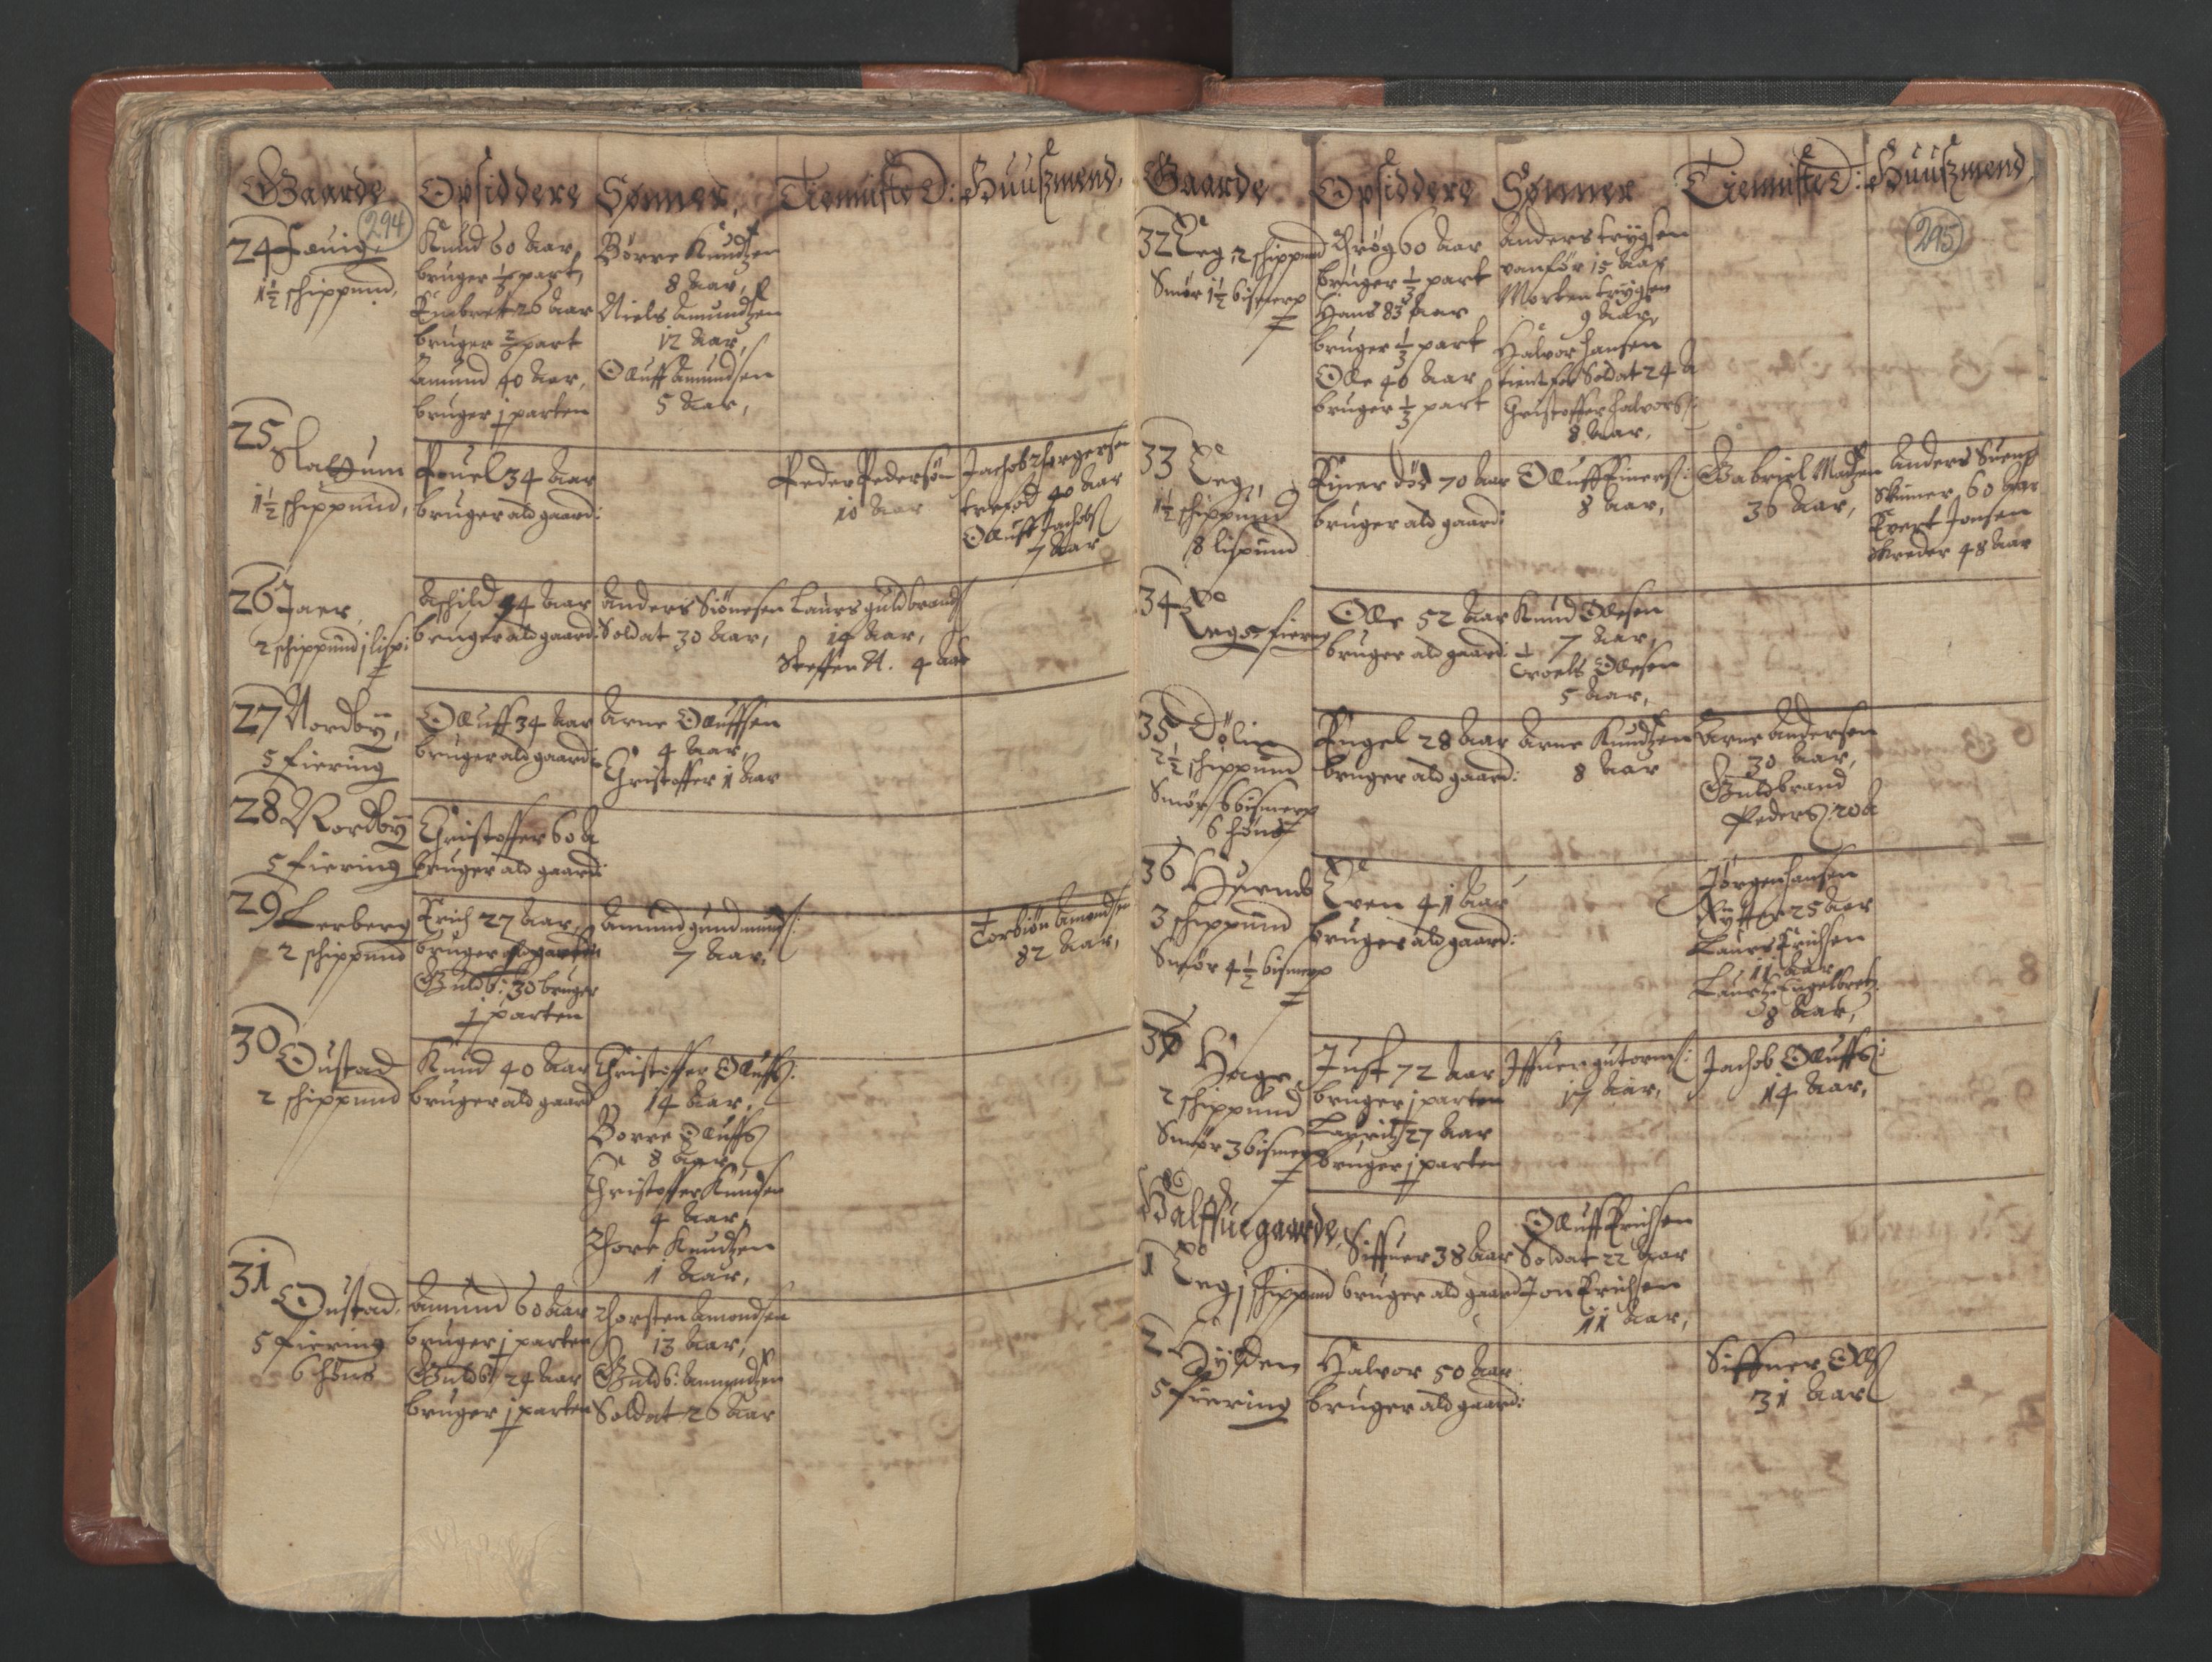 Gaarde Opsiddere Sønner, Tienniste D: Huußmend,
294
24 Fauig
1½ schippund,
Knud 60 Aar,
bruger part
Embret 26 Aar
bruger part
Amund 40 Aar,
bruger j parten
Børre Knudtzen
8 Aar,
Niels Amundtzen
12 Aar,
Olluff Amundsen
5 Aar,
25
Slattum
1½ schippund,
Pouel 34 Aar
bruger ald gaard:
Peder Pedersøn
10 Aar
Jachob
trefod 40 Aar
Olluff Jachobs
7 Aar
26 Jaer
2 schippund j lisp:
Aschild 94 Aar
bruger ald gaard:
Anders Siønesen
Soldat 30 Aar,
Laurs guldbrands
14 Aar,
Steffen A. 4 Aar
27 Nordbÿ,
5 fiering
Olluff 34 Aar
bruger ald gaard:
Arne Olluffsen
4 Aar,
Christoffer 1 Aar
28 Nordbÿ
5 fiering
Christoffer 60 A
bruger ald gaard:
29 Lerberg
2 schippund
Erich 27 Aar,
bruger
Guldb: 30 bruger
j parten
Amund gundmunds:
7 Aar,
Torbiøn Amondsen
82 Aar,
30
Oustad
2 schippund
Knud 40 Aar
bruger ald gaard
Christoffer Olluffs:
14 Aar,
Borre Olluffs
8 Aar,
Christoffer Knudsen
4 Aar,
Thore Knudtzen
1 Aar,
31
Oustad,
5 fiering
6 høns
Amund 60 Aar
bruger j parten
Guldb: 24 Aar
bruger j parten
Thorsten Amondsen
13 Aar,
Guldb: Amundtzen
Soldat 26 Aar
Gaarde Opsiddere Sønner Tienniste D: Huußmend,
295
32 Eeg, 2 schippund
Smør 1½ bismerp
Trøg 60 Aar
bruger ⅓ part
Hans 83 Aar
bruger ⅓ part
Olle 40 Aar
bruger ⅓ part
Anders trygsen
vanfør 15 Aar
Morten trygsen
9 Aar,
Halvor Hansen
tient for Soldat 24 A
Christoffer Halvors:
8 Aar,
33
Eeg,
1½ schippund
8 lispund
Einer død 70 Aar
bruger ald gaard:
Olluff Einers:
8 Aar,
Gabriel Madtzen
36 Aar,
Anders Suens
Skinner 60 Aar
Evert Jonsen
skreder 48 Aar
34
Eeg 5 fiering
Olle 52 Aar
bruger ald gaard:
Knud Ollesen
7 Aar,
Troels Ollesen
5 Aar,
35 Dølin
2½ schippund
Smør 6 bismerp
6 høns
Engel 28 Aar
bruger ald gaard:
Arne Knudtzen
8 Aar
Arne Andersen
30 Aar,
Guldbrand
Peders: 20 A
36 Hurnes
3 schippund
Smør 4½ bismerp
Even 41 Aar
bruger ald gaard:
Jørgen Hansen
Rytter 25 Aar
Laurs Erichsen
11 Aar
Laurtz Engelbretz
8 Aar,
37
Hage
2 schippund
Smør 3 bismerp
Just 72 Aar
bruger j parten
Lauritz 27 Aar
bruger j parten
Iffuer gutorms:
17 Aar,
Jachob Olluffs:
14 Aar,
Halffuegaarde,
1 Eeg j schippund
Siffuer 38 Aar
bruger ald gaard
Olluff Erichsen
Soldat 22 Aar
Jon Erichsen
11 Aar,
2 Hylden
5 fiering
Halvor 50 Aar
bruger ald gaard:
Siffuer Olls
31 Aar